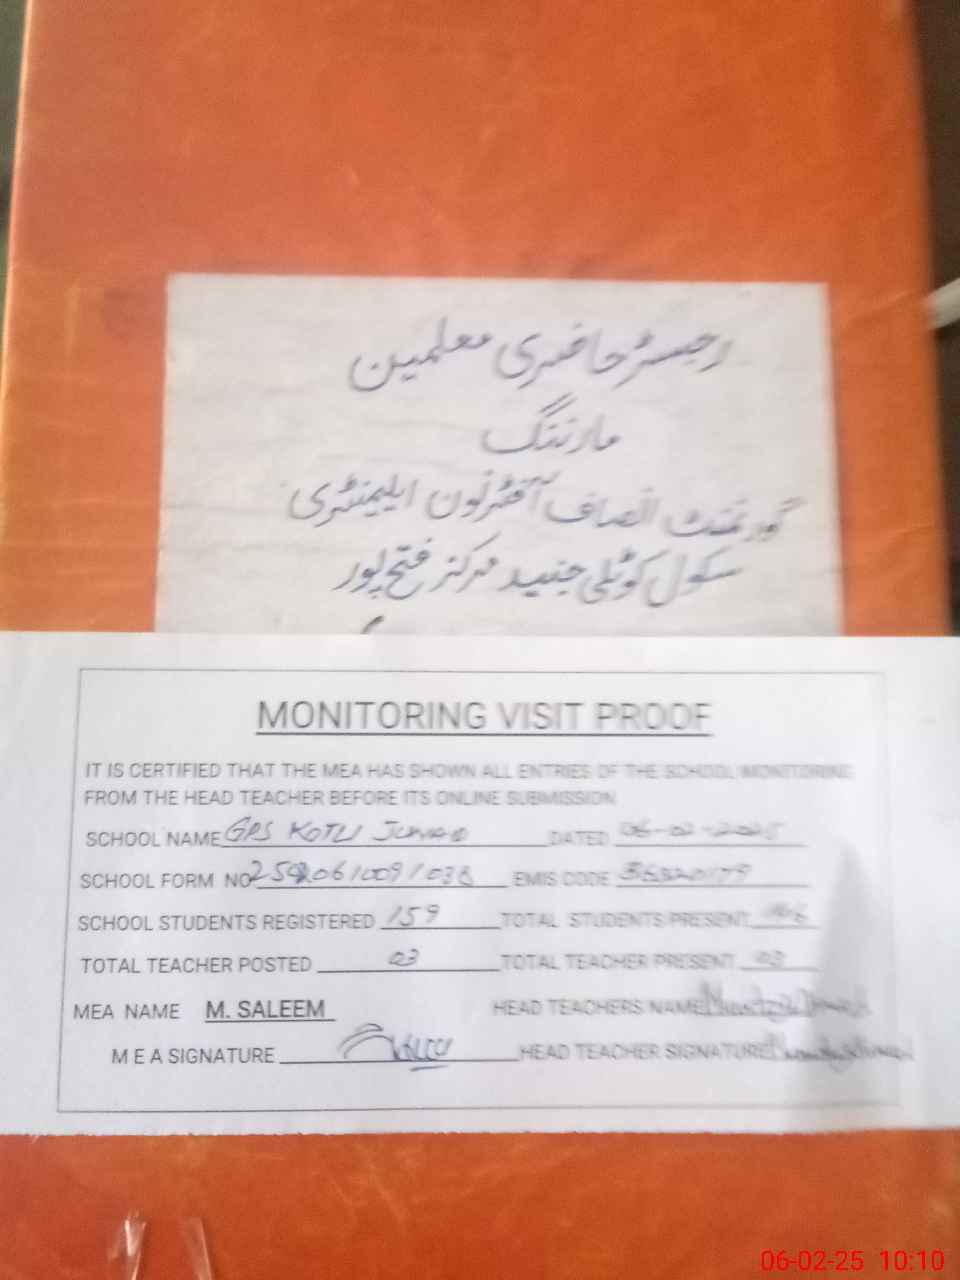 رجسٹر حاضری معلمین
مارننگ
گورنمنٹ انصاف آفٹرنون ایلیمنٹری
سکول کوٹلی جنید مرکز فتح پور
MONITORING VISIT PROOF
IT IS CERTIFIED THAT THE MEA HAS SHOWN ALL ENTRIES OF THE SCHOOL MONITORING
FROM THE HEAD TEACHER BEFORE ITS ONLINE SUBMISSION
SCHOOL NAME GPS KOTLI JUNAID DATED 06-02-2025
SCHOOL FORM NO EMIS CODE
SCHOOL STUDENTS REGISTERED 159 TOTAL STUDENTS PRESENT
TOTAL TEACHER POSTED 03 TOTAL TEACHER PRESENT 03
MEA NAME M. SALEEM HEAD TEACHERS NAME
M E A SIGNATURE HEAD TEACHER SIGNATURE
06-02-25 10:10